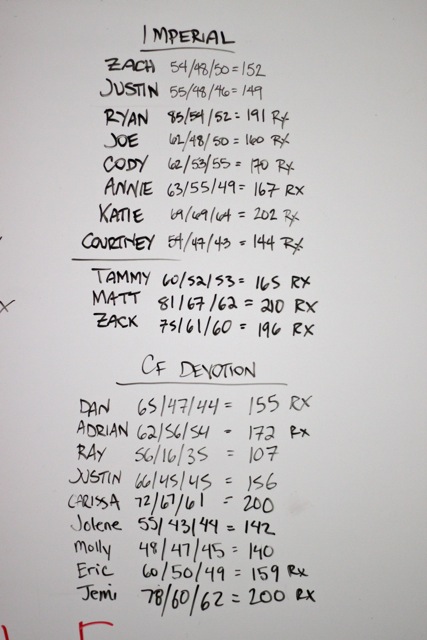 IMPERIAL
ZACH 54/48/50 = 152
JUSTIN 55/48/46 = 149
RYAN 85/54/52 = 191 RX
JOE 62/48/50 = 160 RX
CODY 62/53/55 = 170 RX
ANNIE 63/55/49 = 167 RX
KATIE 69/69/64 = 202 RX
COURTNEY 54/47/43 = 144 RX
TAMMY 60/52/53 = 165 RX
MATT 81/67/62 = 210 RX
ZACK 75/61/60 = 196 RX
CF DEVOTION
DAN 65/47/44 = 155 RX
ADRIAN 62/56/54 = 172 RX
RAY 56/16/35 = 107
JUSTIN 66/45/45 = 156
CARISSA 72/67/61 = 200
Jolene 55/43/44 = 142
Molly 48/47/45 = 140
Eric 60/50/49 = 159 RX
Jemi 78/60/62 = 200 RX